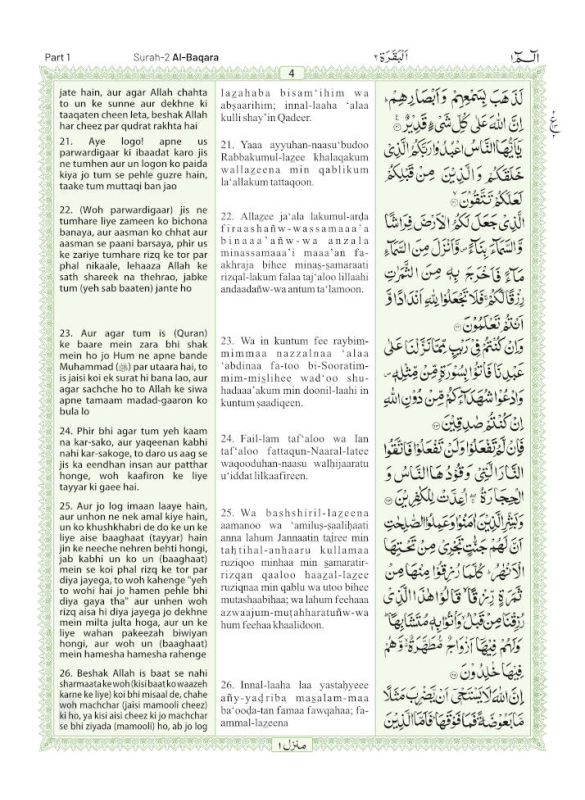 Part 1
Surah-2 Al-Baqara
اَلْبَقَرَة ٢
الٓمّٓ ١
4
jate hain, aur agar Allah chahta
to un ke sunne aur dekhne ki
taaqaten cheen leta, beshak Allah
har cheez par qudrat rakhta hai
21. Aye logo! apne us
parwardigaar ki ibaadat karo jis
ne tumhen aur un logon ko paida
kiya jo tum se pehle guzre hain,
taake tum muttaqi ban jao
22. (Woh parwardigaar) jis ne
tumhare liye zameen ko bichona
banaya, aur aasman ko chhat aur
aasman se paani barsaya, phir us
ke zariye tumhare rizq ke tor par
phal nikaale, lehaaza Allah ke
sath shareek na thehrao, jabke
tum (yeh sab baaten) jante ho
23. Aur agar tum is (Quran)
ke baare mein zara bhi shak
mein ho jo Hum ne apne bande
Muhammad (ﷺ) par utaara hai, to
is jaisi koi ek surat hi bana lao, aur
agar sachche ho to Allah ke siwa
apne tamaam madad-gaaron ko
bula lo
24. Phir bhi agar tum yeh kaam
na kar-sako, aur yaqeenan kabhi
nahi kar-sakoge, to daro us aag se
jis ka eendhan insan aur patthar
honge, woh kaafiron ke liye
tayyar ki gaee hai.
25. Aur jo log imaan laaye hain,
aur unhon ne nek amal kiye hain,
un ko khushkhabri de do ke un ke
liye aise baaghaat (tayyar) hain
jin ke neeche nehren behti hongi,
jab kabhi un ko un (baaghaat)
mein se koi phal rizq ke tor par
diya jayega, to woh kahenge "yeh
to wohi hai jo hamen pehle bhi
diya gaya tha" aur unhen woh
rizq aisa hi diya jayega jo dekhne
mein milta julta hoga, aur un ke
liye wahan pakeezah biwiyan
hongi, aur woh un (baaghaat)
mein hamesha hamesha rahenge
26. Beshak Allah is baat se nahi
sharmaata ke woh (kisi baat ko waazeh
karne ke liye) koi bhi misaal de, chahe
woh machchar (jaisi mamooli cheez)
ki ho, ya kisi aisi cheez ki jo machchar
se bhi ziyada (mamooli) ho, ab jo log
lazahaba bisam‘ihim wa
abṣaarihim; innal-laaha ‘alaa
kulli shay’in Qadeer.
21. Yaaa ayyuhan-naasu‘budoo
Rabbakumul-lazee khalaqakum
wallazeena min qablikum
la‘allakum tattaqoon.
22. Allaẓee ja‘ala lakumul-arḍa
firaashañw-wassamaaa’a
binaaa’añw-wa anzala
minassamaaa’i maaa’an fa-
akhraja bihee minaṣ-ṣamaraati
rizqal-lakum falaa taj‘aloo lillaahi
andaadañw-wa antum ta‘lamoon.
23. Wa in kuntum fee raybim-
mimmaa nazzalnaa ‘alaa
‘abdinaa fa-too bi-Sooratim-
mim-miṣlihee wad‘oo shu-
hadaaa’akum min doonil-laahi in
kuntum ṣaadiqeen.
24. Fail-lam taf‘aloo wa lan
taf‘aloo fattaqun-Naaral-latee
waqooduhan-naasu walḥijaaratu
u‘iddat lilkaafireen.
25. Wa bashshiril-lazeena
aamanoo wa ‘amiluṣ-ṣaaliḥaati
anna lahum Jannaatin tajree min
taḥtihal-anhaaru kullamaa
ruziqoo minhaa min ṣamaratir-
rizqan qaaloo haazal-lazee
ruziqnaa min qablu wa utoo bihee
mutashaabihaa; wa lahum feehaaa
azwaajum-muṭahharatuñw-wa
hum feehaa khaalidoon.
26. Innal-laaha laa yastaḥyeee
añy-yaḍriba maṣalam-maa
ba‘ooda-tan famaa fawqahaa; fa-
ammal-lazeena
لَذَهَبَ بِسَمْعِهِمْ وَاَبْصَارِهِمْ ؕ
اِنَّ اللّٰهَ عَلٰى كُلِّ شَىْءٍ قَدِيْرٌ
يٰٓاَيُّهَا النَّاسُ اعْبُدُوْا رَبَّكُمُ الَّذِىْ
خَلَقَكُمْ وَالَّذِيْنَ مِنْ قَبْلِكُمْ
لَعَلَّكُمْ تَتَّقُوْنَ
الَّذِىْ جَعَلَ لَكُمُ الْاَرْضَ فِرَاشًا
وَّالسَّمَآءَ بِنَآءً وَّاَنْزَلَ مِنَ السَّمَآءِ
مَآءً فَاَخْرَجَ بِهٖ مِنَ الثَّمَرٰتِ
رِزْقًا لَّكُمْ ۚ فَلَا تَجْعَلُوْا لِلّٰهِ اَنْدَادًا وَّ
اَنْتُمْ تَعْلَمُوْنَ
وَاِنْ كُنْتُمْ فِىْ رَيْبٍ مِّمَّا نَزَّلْنَا عَلٰى
عَبْدِنَا فَاْتُوْا بِسُوْرَةٍ مِّنْ مِّثْلِهٖ
وَادْعُوْا شُهَدَآءَكُمْ مِّنْ دُوْنِ اللّٰهِ
اِنْ كُنْتُمْ صٰدِقِيْنَ
فَاِنْ لَّمْ تَفْعَلُوْا وَلَنْ تَفْعَلُوْا فَاتَّقُوا
النَّارَ الَّتِىْ وَقُوْدُهَا النَّاسُ وَ
الْحِجَارَةُ ۖۚ اُعِدَّتْ لِلْكٰفِرِيْنَ
وَبَشِّرِ الَّذِيْنَ اٰمَنُوْا وَعَمِلُوا الصّٰلِحٰتِ
اَنَّ لَهُمْ جَنّٰتٍ تَجْرِىْ مِنْ تَحْتِهَا
الْاَنْهٰرُ ؕ كُلَّمَا رُزِقُوْا مِنْهَا مِنْ
ثَمَرَةٍ رِّزْقًا ۙ قَالُوْا هٰذَا الَّذِىْ
رُزِقْنَا مِنْ قَبْلُ ۙ وَاُتُوْا بِهٖ مُتَشَابِهًا ؕ
وَلَهُمْ فِيْهَآ اَزْوَاجٌ مُّطَهَّرَةٌ ۙ وَّهُمْ
فِيْهَا خٰلِدُوْنَ
اِنَّ اللّٰهَ لَا يَسْتَحْىٖٓ اَنْ يَّضْرِبَ مَثَلًا
مَّا بَعُوْضَةً فَمَا فَوْقَهَا ؕ فَاَمَّا الَّذِيْنَ
منزل ١